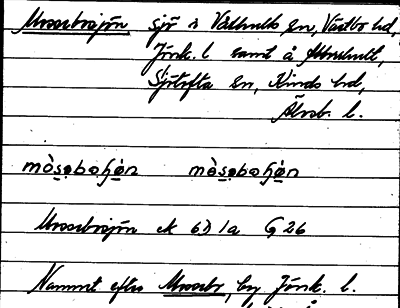 Mosebosjön sjö i Våthults sn, Västbo hd,
Jönk. l. samt å
sn, Kinds hd,
Älvsb. l.
mòsebohø̀n mòsebohø̀n
Mosebosjön ek 6D 1a G 26
Namnet efter Mosebo, by Jönk. l.